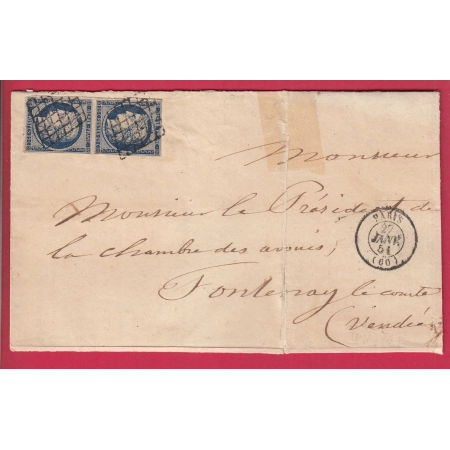 Monsieur
Monsieur le Président de
la chambre des avoués,
Fontenay le comte
(Vendée)
PARIS
27
JANV.
51
(60)